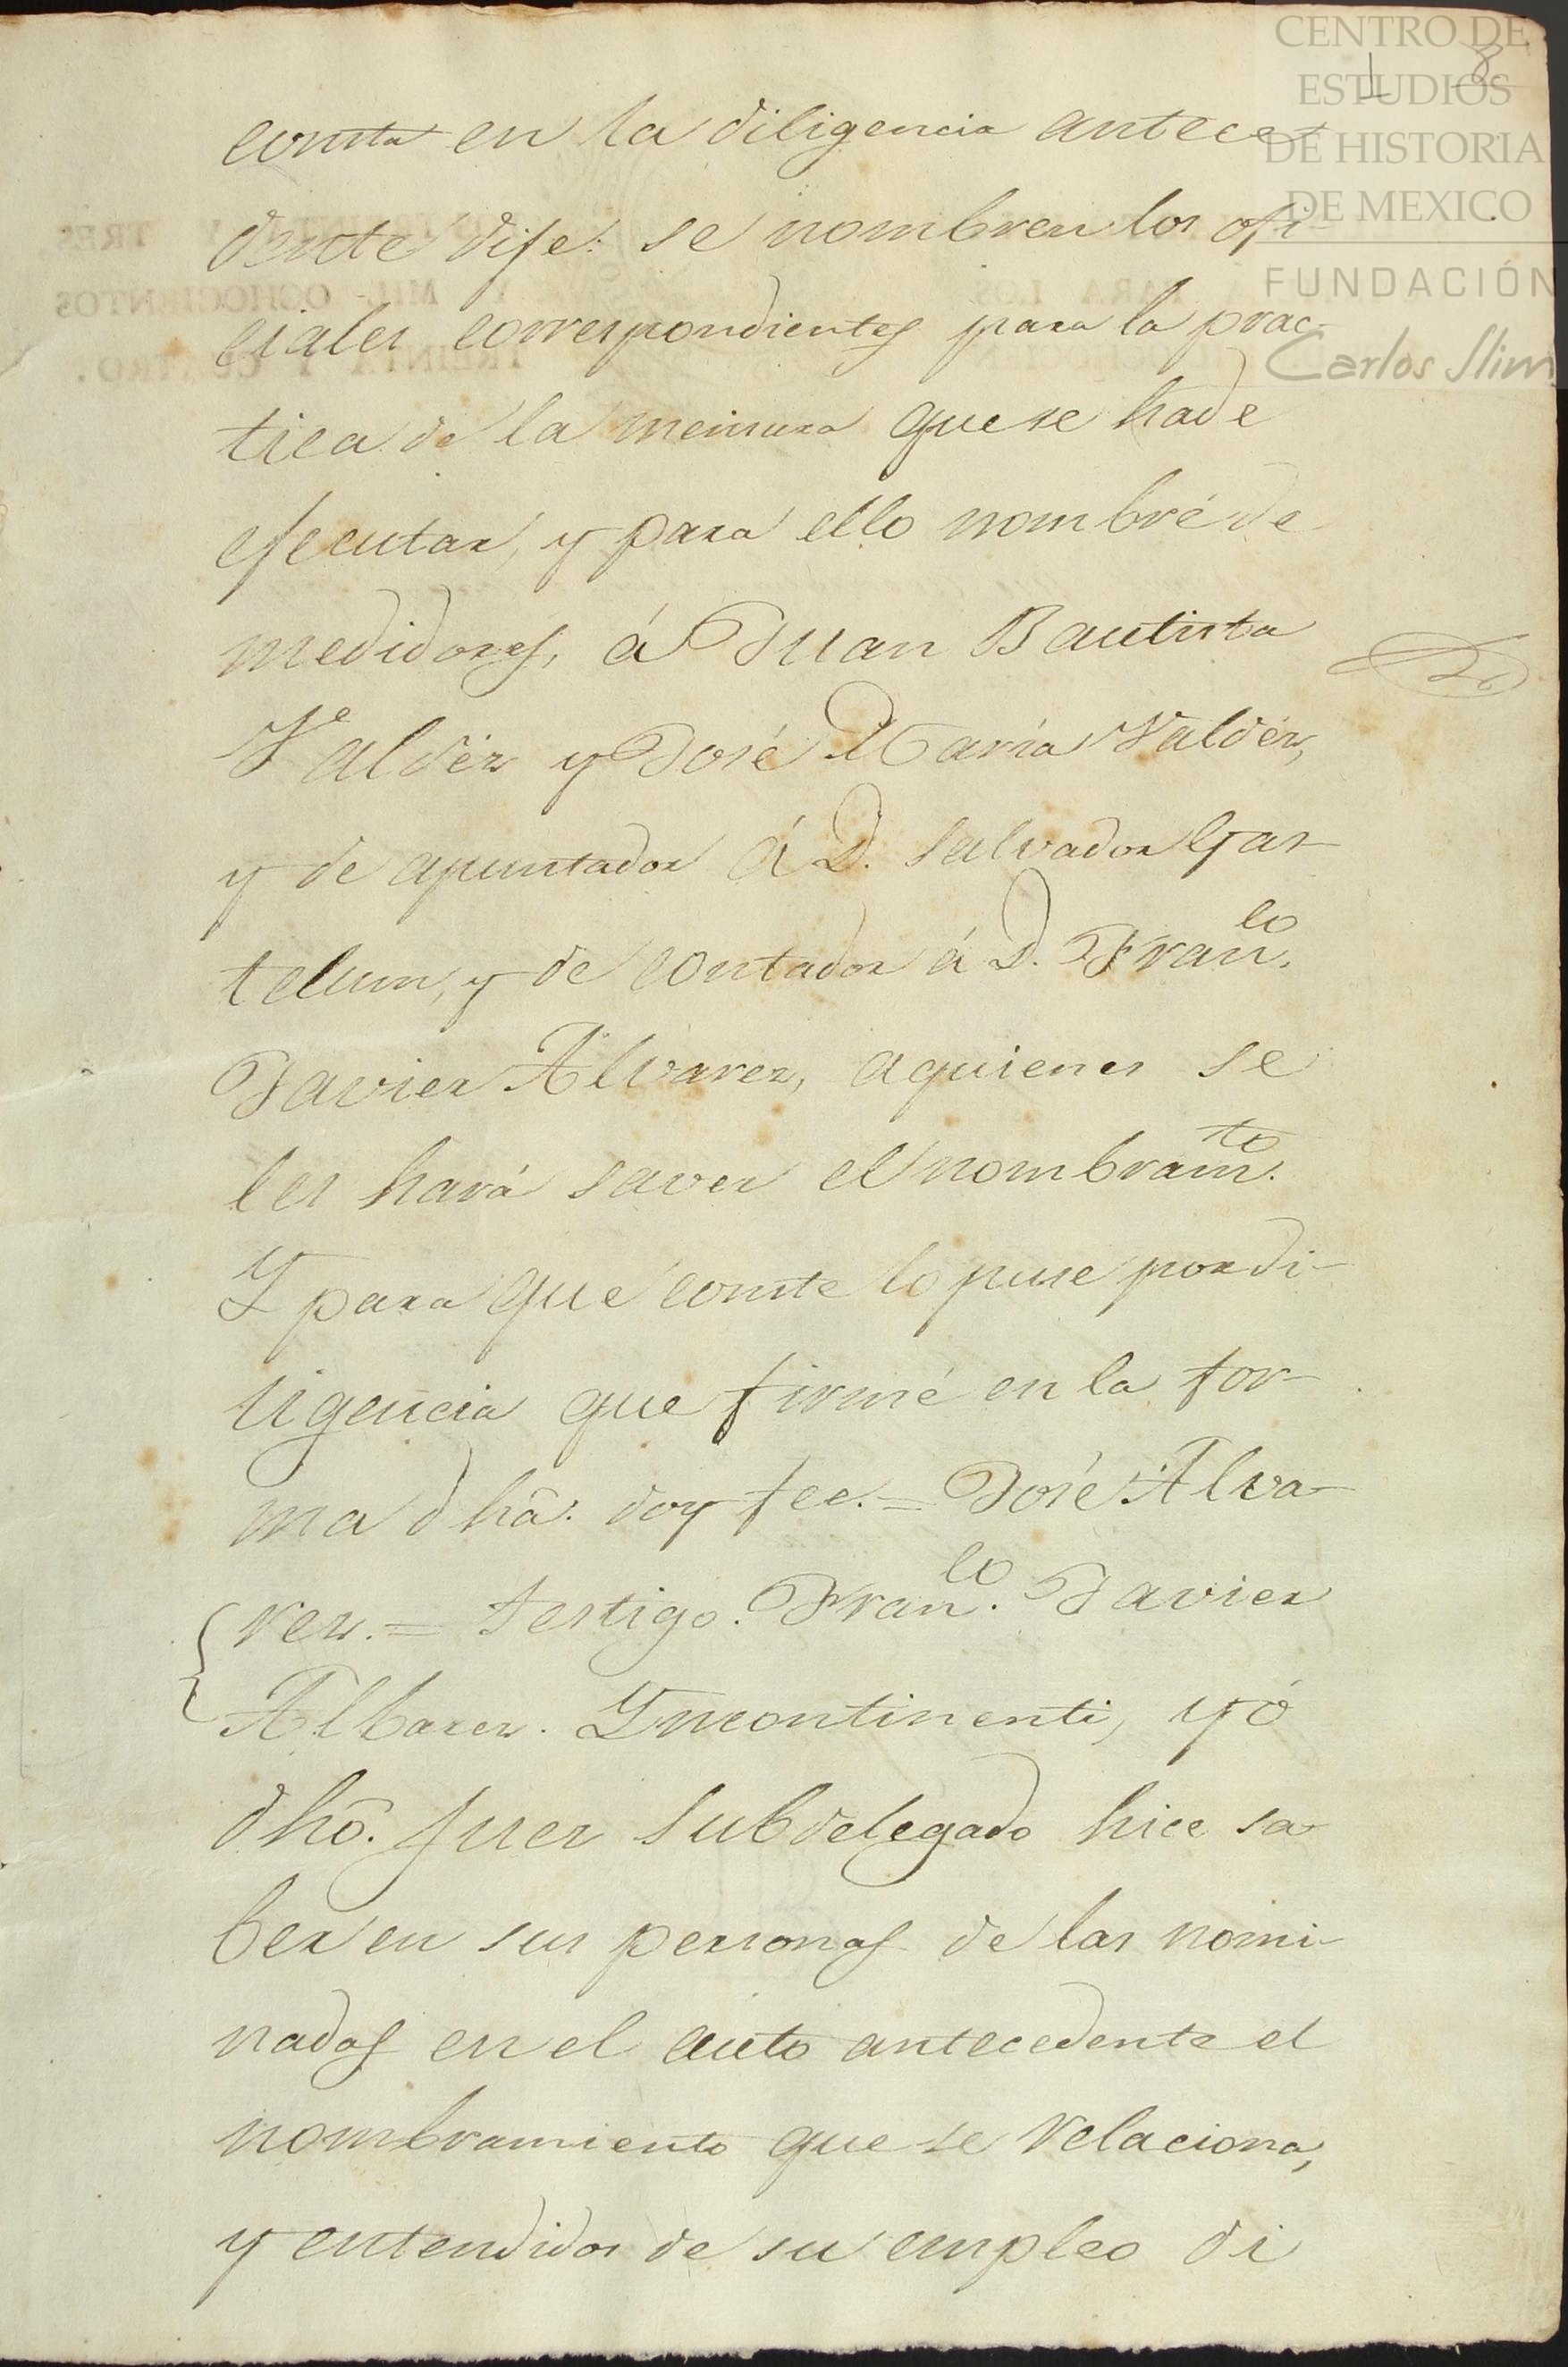 CENTRO DE
ESTUDIOS
DE HISTORIA
DE MEXICO
FUNDACIÓN
Carlos Slim
8
consta en la diligencia antece-
dente dije: se nombren los ofi-
ciales correspondientes para la prac-
tica de la mensura que se ha de
ejecutar, y para ello nombré de
medidores, á Juan Bautista
Valdéz y José María Valdéz,
y de apuntador á D. Salvador Gas-
telum, y de contador á D. Franco.
Javier Alvarez, a quienes se
les hará saver el nombramto.
Y para que conste lo puse por di-
ligencia que firmé en la for-
ma dha. doy fee.= José Alva-
rez.= testigo. Franco. Javier
Albarez. Yncontinenti, yó
dho. Juez Subdelegado hice sa-
ber en sus personas de las nomi-
nadas en el auto antecedente el
nombramiento que se relaciona,
y entendidos de su empleo di